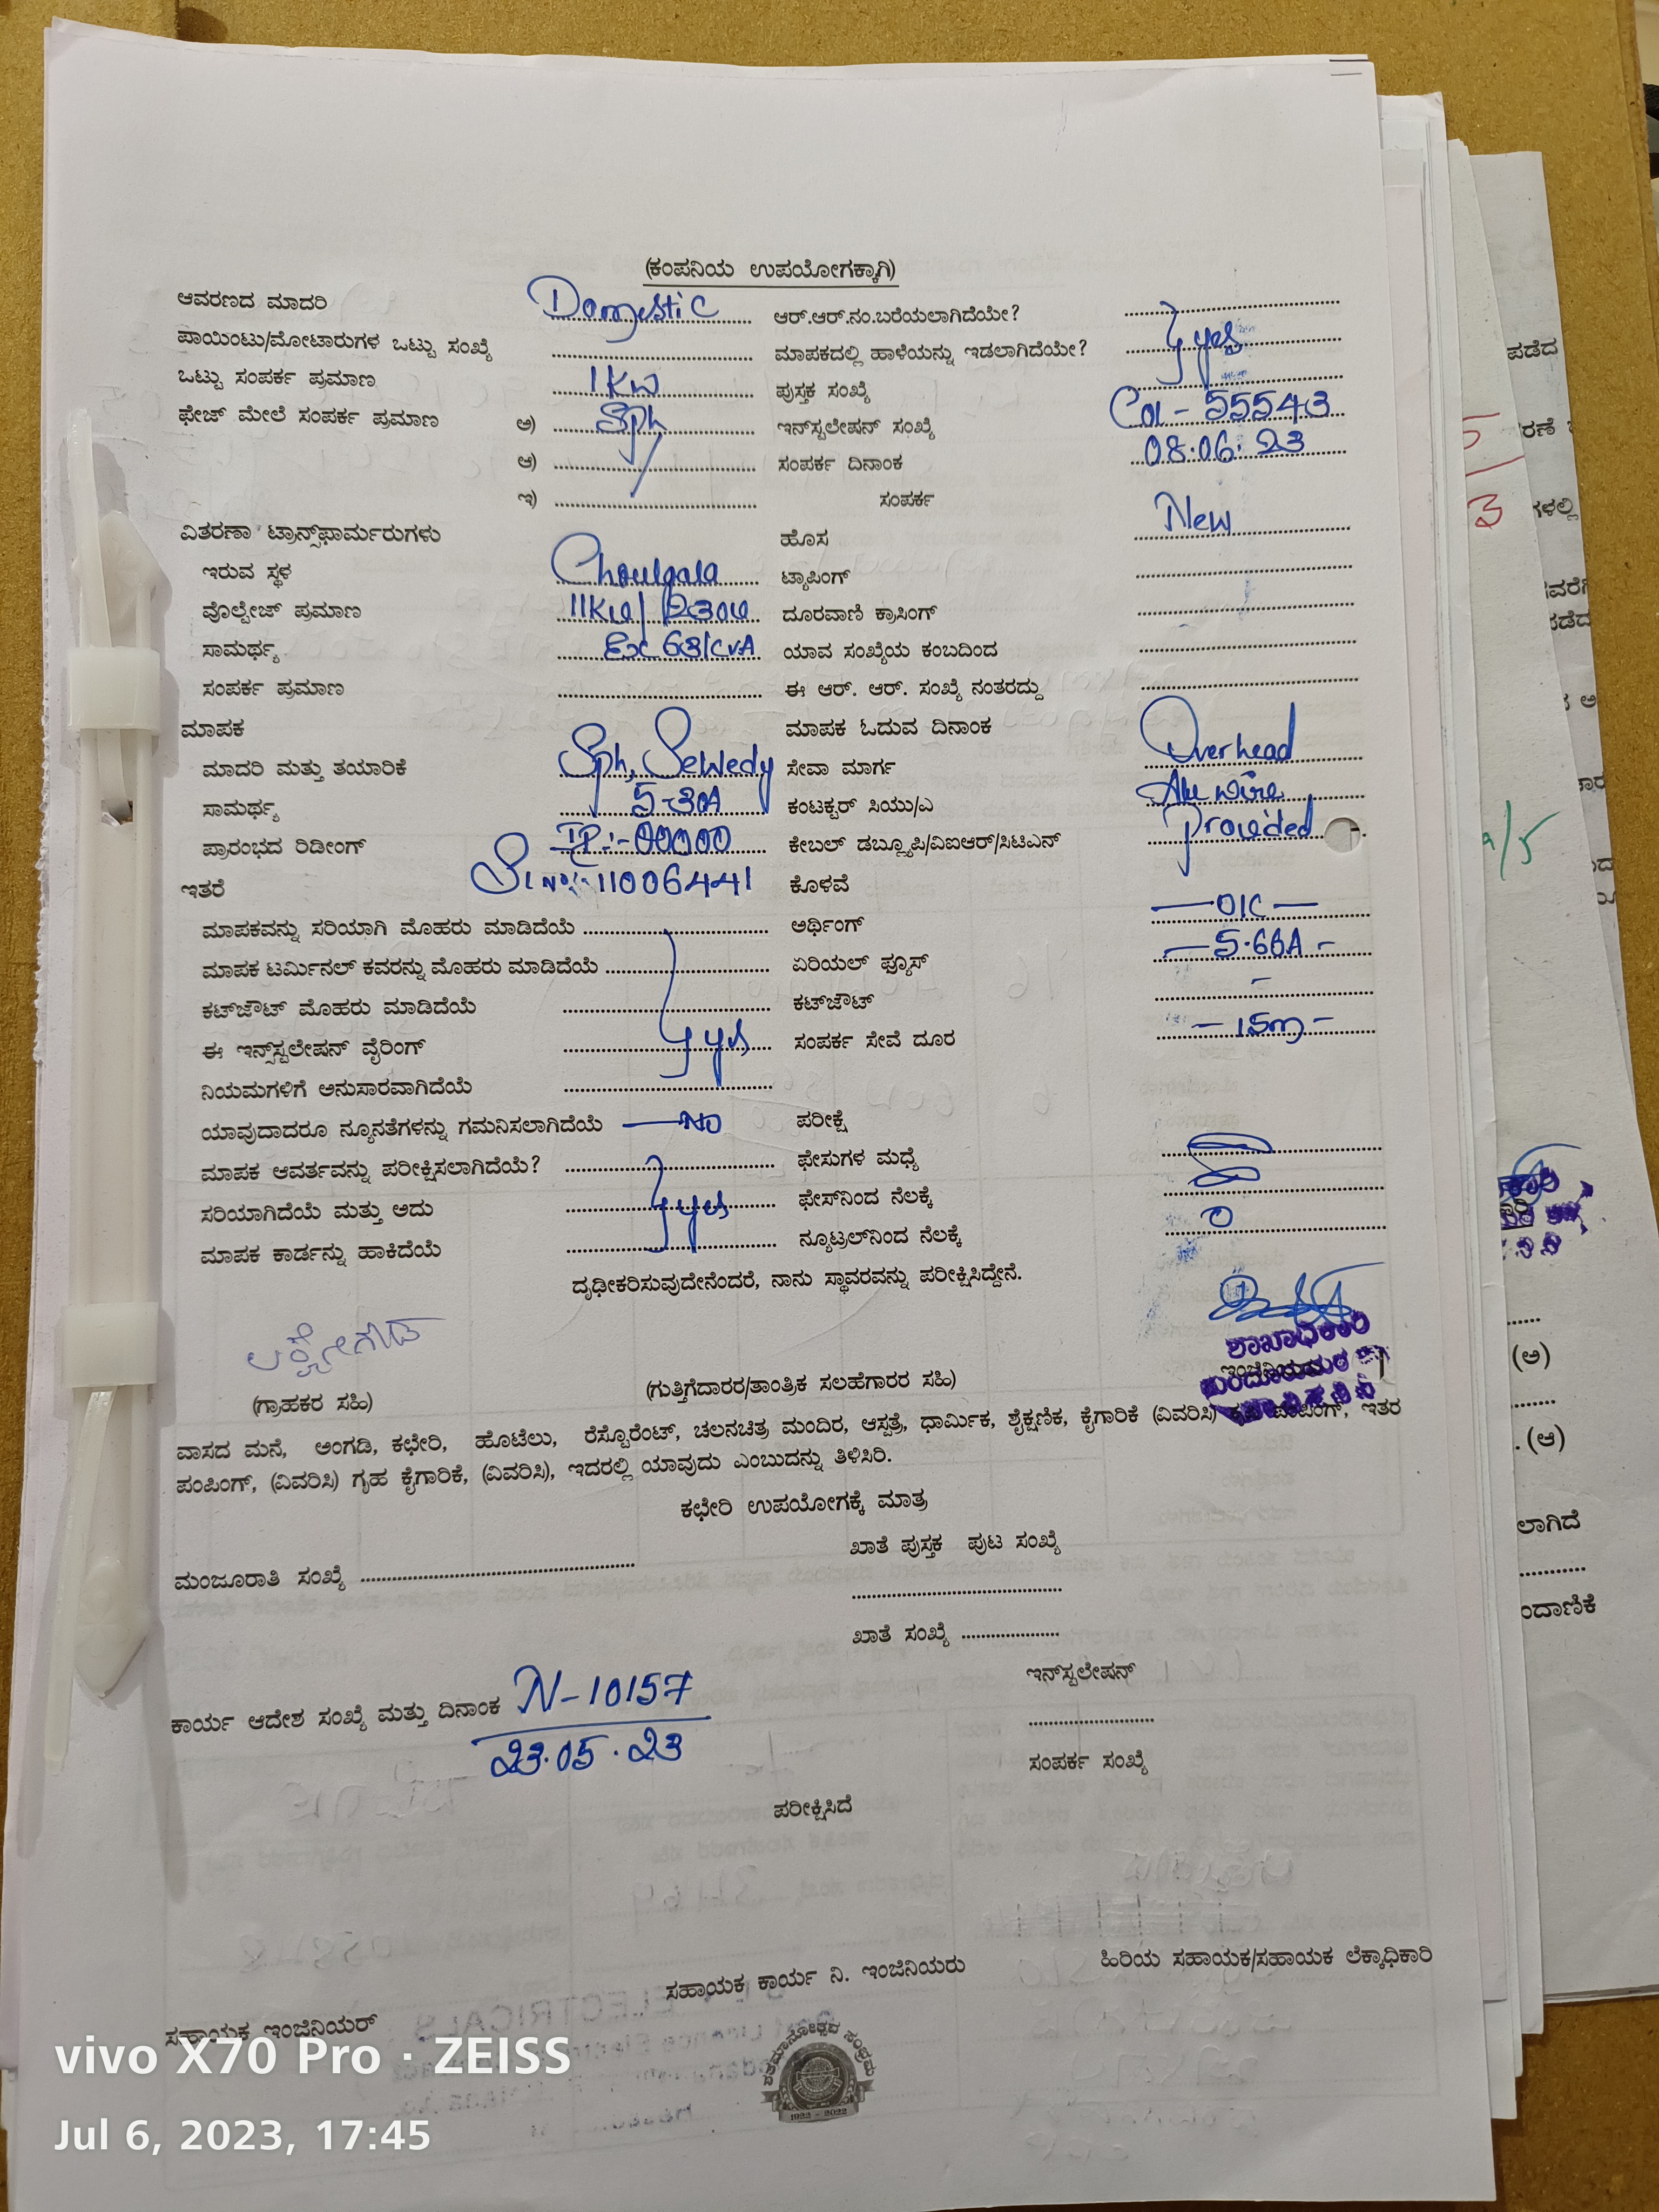 (ಕಂಪನಿಯ ಉಪಯೋಗಕ್ಕಾಗಿ)
ಆವರಣದ ಮಾದರಿ Domestic ಆರ್.ಆರ್.ನಂ.ಬರೆಯಲಾಗಿದೆಯೇ?
ಪಾಯಿಂಟು/ಮೋಟಾರುಗಳ ಒಟ್ಟು ಸಂಖ್ಯೆ ಮಾಪಕದಲ್ಲಿ ಹಾಳೆಯನ್ನು ಇಡಲಾಗಿದೆಯೇ? yes
ಒಟ್ಟು ಸಂಪರ್ಕ ಪ್ರಮಾಣ 1Kw ಪುಸ್ತಕ ಸಂಖ್ಯೆ
ಫೇಜ್ ಮೇಲೆ ಸಂಪರ್ಕ ಪ್ರಮಾಣ ಅ) Sph ಇನ್‌ಸ್ಟಲೇಷನ್ ಸಂಖ್ಯೆ 55543
ಆ) ಸಂಪರ್ಕ ದಿನಾಂಕ 08.06.23
ಇ) ಸಂಪರ್ಕ
ವಿತರಣಾ ಟ್ರಾನ್ಸ್‌ಫಾರ್ಮರುಗಳು ಹೊಸ New
ಇರುವ ಸ್ಥಳ ಟ್ಯಾಪಿಂಗ್
ವೊಲ್ಟೇಜ್ ಪ್ರಮಾಣ ದೂರವಾಣಿ ಕ್ರಾಸಿಂಗ್
ಸಾಮರ್ಥ್ಯ ಯಾವ ಸಂಖ್ಯೆಯ ಕಂಬದಿಂದ
ಸಂಪರ್ಕ ಪ್ರಮಾಣ ಈ ಆರ್. ಆರ್. ಸಂಖ್ಯೆ ನಂತರದ್ದು
ಮಾಪಕ ಮಾಪಕ ಓದುವ ದಿನಾಂಕ
ಮಾದರಿ ಮತ್ತು ತಯಾರಿಕೆ Sph, Sewedy ಸೇವಾ ಮಾರ್ಗ Overhead
ಸಾಮರ್ಥ್ಯ 5-30A ಕಂಟಕ್ಟರ್ ಸಿಯು/ಎ wire
ಪ್ರಾರಂಭದ ರಿಡೀಂಗ್ 00000 ಕೇಬಲ್ ಡಬ್ಲ್ಯೂಪಿ/ವಿಐಆರ್/ಸಿಟಿಎನ್ provided
ಇತರೆ 11006441 ಕೊಳವೆ
ಮಾಪಕವನ್ನು ಸರಿಯಾಗಿ ಮೊಹರು ಮಾಡಿದೆಯೆ ಅರ್ಥಿಂಗ್ —OK—
ಮಾಪಕ ಟರ್ಮಿನಲ್ ಕವರನ್ನು ಮೊಹರು ಮಾಡಿದೆಯೆ ಏರಿಯಲ್ ಫ್ಯೂಸ್
ಕಟ್‌ಜೌಟ್ ಮೊಹರು ಮಾಡಿದೆಯೆ ಕಟ್‌ಜೌಟ್ -
ಈ ಇನ್ಸ್‌ಸ್ಟಲೇಷನ್ ವೈರಿಂಗ್ yes ಸಂಪರ್ಕ ಸೇವೆ ದೂರ -15m-
ನಿಯಮಗಳಿಗೆ ಅನುಸಾರವಾಗಿದೆಯೆ
ಯಾವುದಾದರೂ ನ್ಯೂನತೆಗಳನ್ನು ಗಮನಿಸಲಾಗಿದೆಯೆ —NO ಪರೀಕ್ಷೆ
ಮಾಪಕ ಆವರ್ತವನ್ನು ಪರೀಕ್ಷಿಸಲಾಗಿದೆಯೆ? ಫೇಸುಗಳ ಮಧ್ಯೆ
ಸರಿಯಾಗಿದೆಯೆ ಮತ್ತು ಅದು yes ಫೇಸ್‌ನಿಂದ ನೆಲಕ್ಕೆ
ಮಾಪಕ ಕಾರ್ಡನ್ನು ಹಾಕಿದೆಯೆ ನ್ಯೂಟ್ರಲ್‌ನಿಂದ ನೆಲಕ್ಕೆ 0
ದೃಢೀಕರಿಸುವುದೇನೆಂದರೆ, ನಾನು ಸ್ಥಾವರವನ್ನು ಪರೀಕ್ಷಿಸಿದ್ದೇನೆ.
ಶಾಖಾಧಿಕಾರಿ
(ಗ್ರಾಹಕರ ಸಹಿ) (ಗುತ್ತಿಗೆದಾರರ/ತಾಂತ್ರಿಕ ಸಲಹೆಗಾರರ ಸಹಿ)
ವಾಸದ ಮನೆ, ಅಂಗಡಿ, ಕಛೇರಿ, ಹೊಟೆಲು, ರೆಸ್ಟೊರೆಂಟ್, ಚಲನಚಿತ್ರ ಮಂದಿರ, ಆಸ್ಪತ್ರೆ, ಧಾರ್ಮಿಕ, ಶೈಕ್ಷಣಿಕ, ಕೈಗಾರಿಕೆ (ವಿವರಿಸಿ) ಪಂಪಿಂಗ್, ಇತರ
ಪಂಪಿಂಗ್, (ವಿವರಿಸಿ) ಗೃಹ ಕೈಗಾರಿಕೆ, (ವಿವರಿಸಿ), ಇದರಲ್ಲಿ ಯಾವುದು ಎಂಬುದನ್ನು ತಿಳಿಸಿರಿ.
ಕಛೇರಿ ಉಪಯೋಗಕ್ಕೆ ಮಾತ್ರ
ಖಾತೆ ಪುಸ್ತಕ ಪುಟ ಸಂಖ್ಯೆ
ಮಂಜೂರಾತಿ ಸಂಖ್ಯೆ
ಖಾತೆ ಸಂಖ್ಯೆ
ಇನ್‌ಸ್ಟಲೇಷನ್
ಕಾರ್ಯ ಆದೇಶ ಸಂಖ್ಯೆ ಮತ್ತು ದಿನಾಂಕ N-10157
23.05.23
ಸಂಪರ್ಕ ಸಂಖ್ಯೆ
ಪರೀಕ್ಷಿಸಿದೆ
ಸಹಾಯಕ ಇಂಜಿನಿಯರ್ ಸಹಾಯಕ ಕಾರ್ಯ ನಿ. ಇಂಜಿನಿಯರು ಹಿರಿಯ ಸಹಾಯಕ/ಸಹಾಯಕ ಲೆಕ್ಕಾಧಿಕಾರಿ
ಶತಮಾನೋತ್ಸವ ಸಂಭ್ರಮ
1922 - 2022
vivo X70 Pro · ZEISS
Jul 6, 2023, 17:45
ಪಡೆದ
ಗಳಲ್ಲಿ
(ಅ)
(ಆ)
ಲಾಗಿದೆ